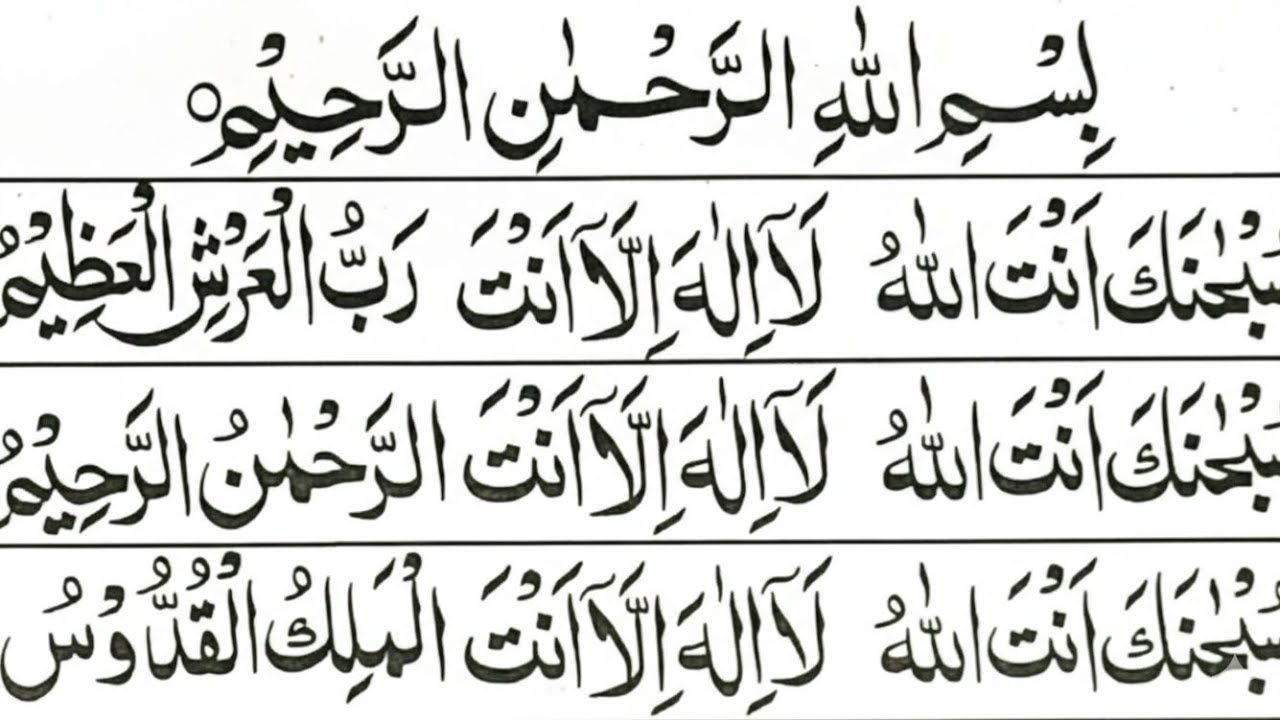 بِسْمِ اللّٰهِ الرَّحْمٰنِ الرَّحِيْمِ○
سُبْحٰنَكَ اَنْتَ اللّٰهُ لَآ اِلٰهَ اِلَّآ اَنْتَ رَبُّ الْعَرْشِ الْعَظِيْمُ
سُبْحٰنَكَ اَنْتَ اللّٰهُ لَآ اِلٰهَ اِلَّآ اَنْتَ الرَّحْمٰنُ الرَّحِيْمُ
سُبْحٰنَكَ اَنْتَ اللّٰهُ لَآ اِلٰهَ اِلَّآ اَنْتَ الْمَلِكُ الْقُدُّوْسُ